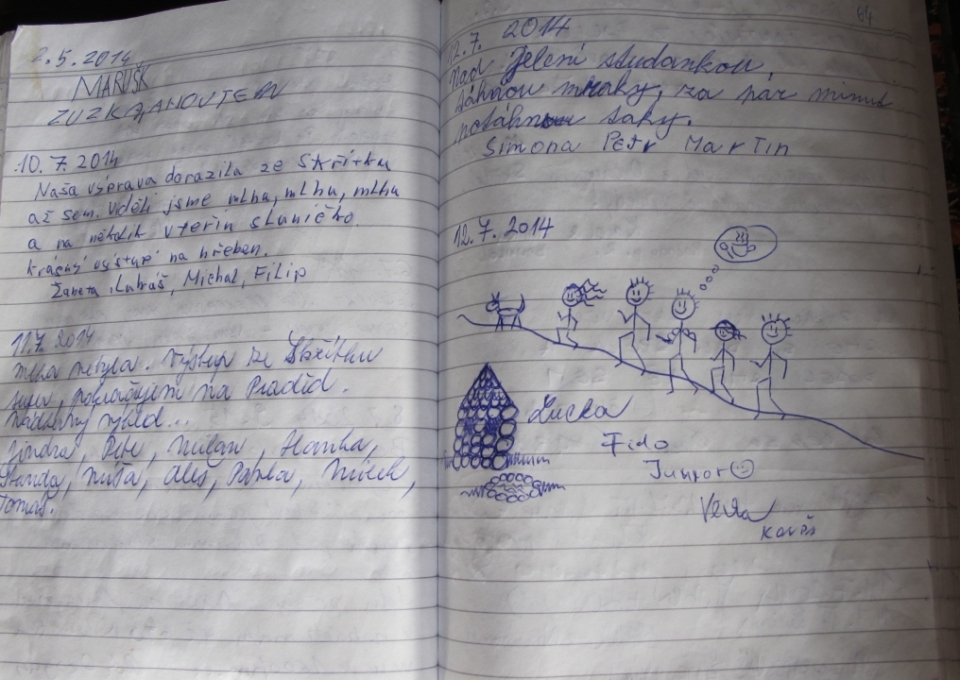 2.5.2014
MARUŠK
10. 7. 2014
Naša výprava dorazila ze Skřítku
až sem. Viděli jsme mlhu, mlhu, mlhu
a na několik vteřin sluníčko.
krásný výstup na hřeben.
Žaneta, Lukáš, Michal, Filip
11.7. 2014
mlha nebyla. Výstup ze Skřítku
sem, pokračujem na Praděd.
nádherný výhled...
Jindra, Petr, Milan, Hanka,
Standa, Míša, Aleš, Mílek,
Tomáš.
64
12.7. 2014
Nad Jelení studankou,
táhnou mraky, za pár minut
potáhnou taky.
Simona Petr Martin
12.7. 2014
Lucka
Fido
Junior